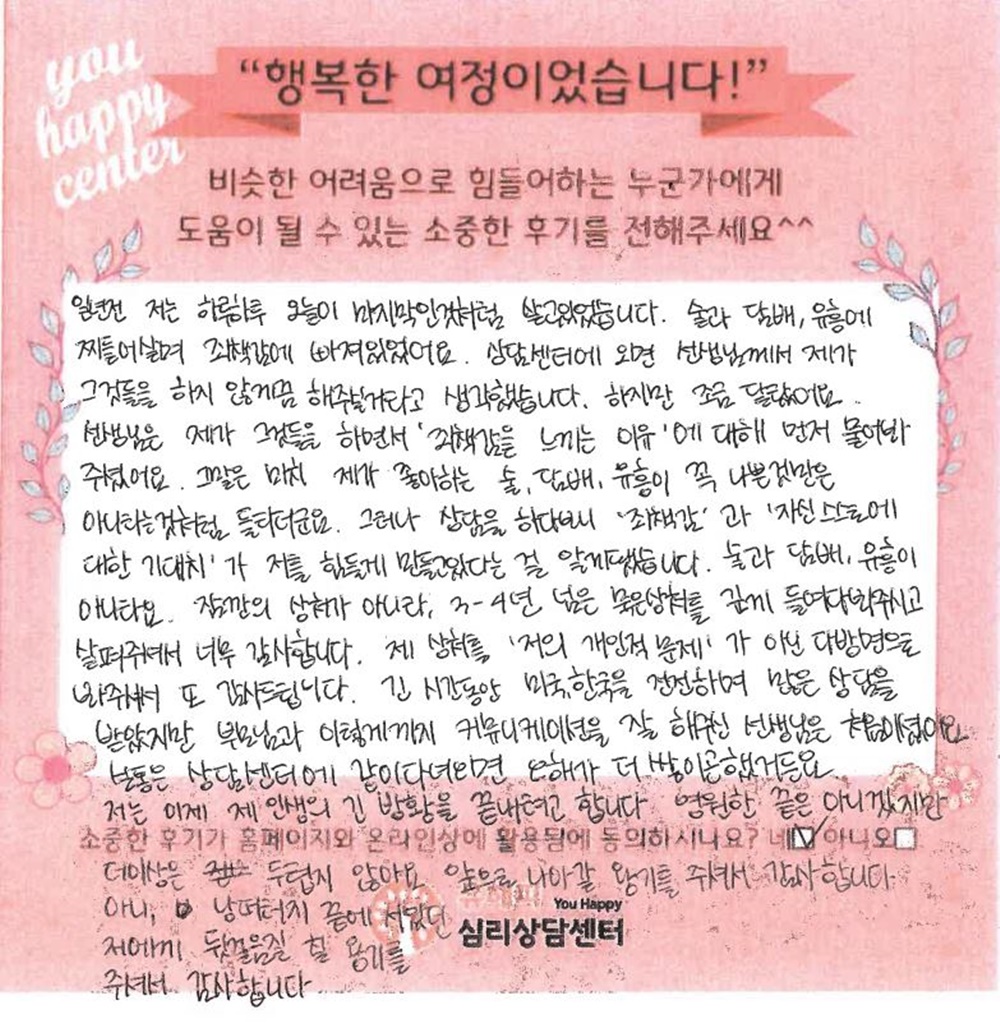 you
happy
center
“행복한 여정이었습니다!”
비슷한 어려움으로 힘들어하는 누군가에게
도움이 될 수 있는 소중한 후기를 전해주세요^^
일년전 저는 하루하루 오늘이 마지막인것처럼 살고있었습니다. 술과 담배, 유흥에
찌들어살며 죄책감에 빠져있었어요. 상담센터에 오면 선생님께서 제가
그것들을 하지 않게끔 해주실거라고 생각했습니다. 하지만 조금 달랐어요.
선생님은 제가 그것들을 하면서 '죄책감을 느끼는 이유'에 대해 먼저 물어봐
주셨어요. 그말은 마치 제가 좋아하는 술, 담배, 유흥이 꼭 나쁜것만은
아니라는것처럼 들리더군요. 그러나 상담을 하다보니 '죄책감'과 '자신 스스로에
대한 기대치'가 저를 힘들게 만들고있다는 걸 알게되었습니다. 술과 담배, 유흥이
아니라요. 잠깐의 상처가 아니라, 3-4년 넘은 묵은상처를 깊게 들여다봐주시고
살펴주셔서 너무 감사합니다. 제 상처를 '저의 개인적 문제'가 아닌 다방면으로
봐주셔서 또 감사드립니다. 긴 시간동안 미국,한국을 전전하며 많은 상담을
받았지만 부모님과 이렇게까지 커뮤니케이션을 잘 해주신 선생님은 처음이셨어요
보통은 상담센터에 같이다녀오면 오해가 더 쌓이곤했거든요
저는 이제 제 인생의 긴 방황을 끝내려고 합니다 영원한 끝은 아니겠지만
소중한 후기가 홈페이지와 온라인상에 활용됨에 동의하시나요? 네☑ 아니오☐
더이상은 두렵지 않아요 앞으로 나아갈 용기를 주셔서 감사합니다
아니, 낭떠러지 끝에 서있던
You Happy
심리상담센터
저에게, 뒷걸음질 칠 용기를
주셔서 감사합니다